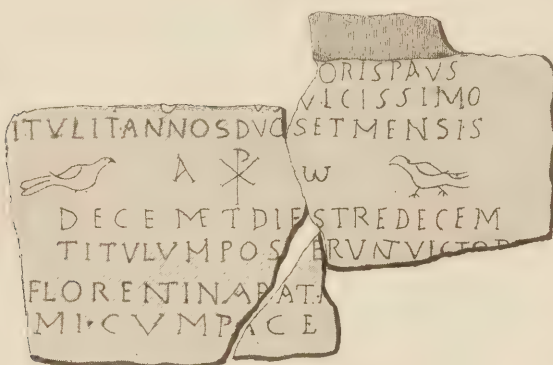 ORISPAVS
VLCISSIMO
ITVLITANNOSDVOSETMENSIS
A ☧ ω
DECEMETDIESTREDECEM
TITVLVMPOS ERVNTVICTOR
FLORENTINAPAT
MI·CVMPACE